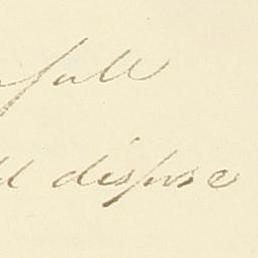 full
dispose